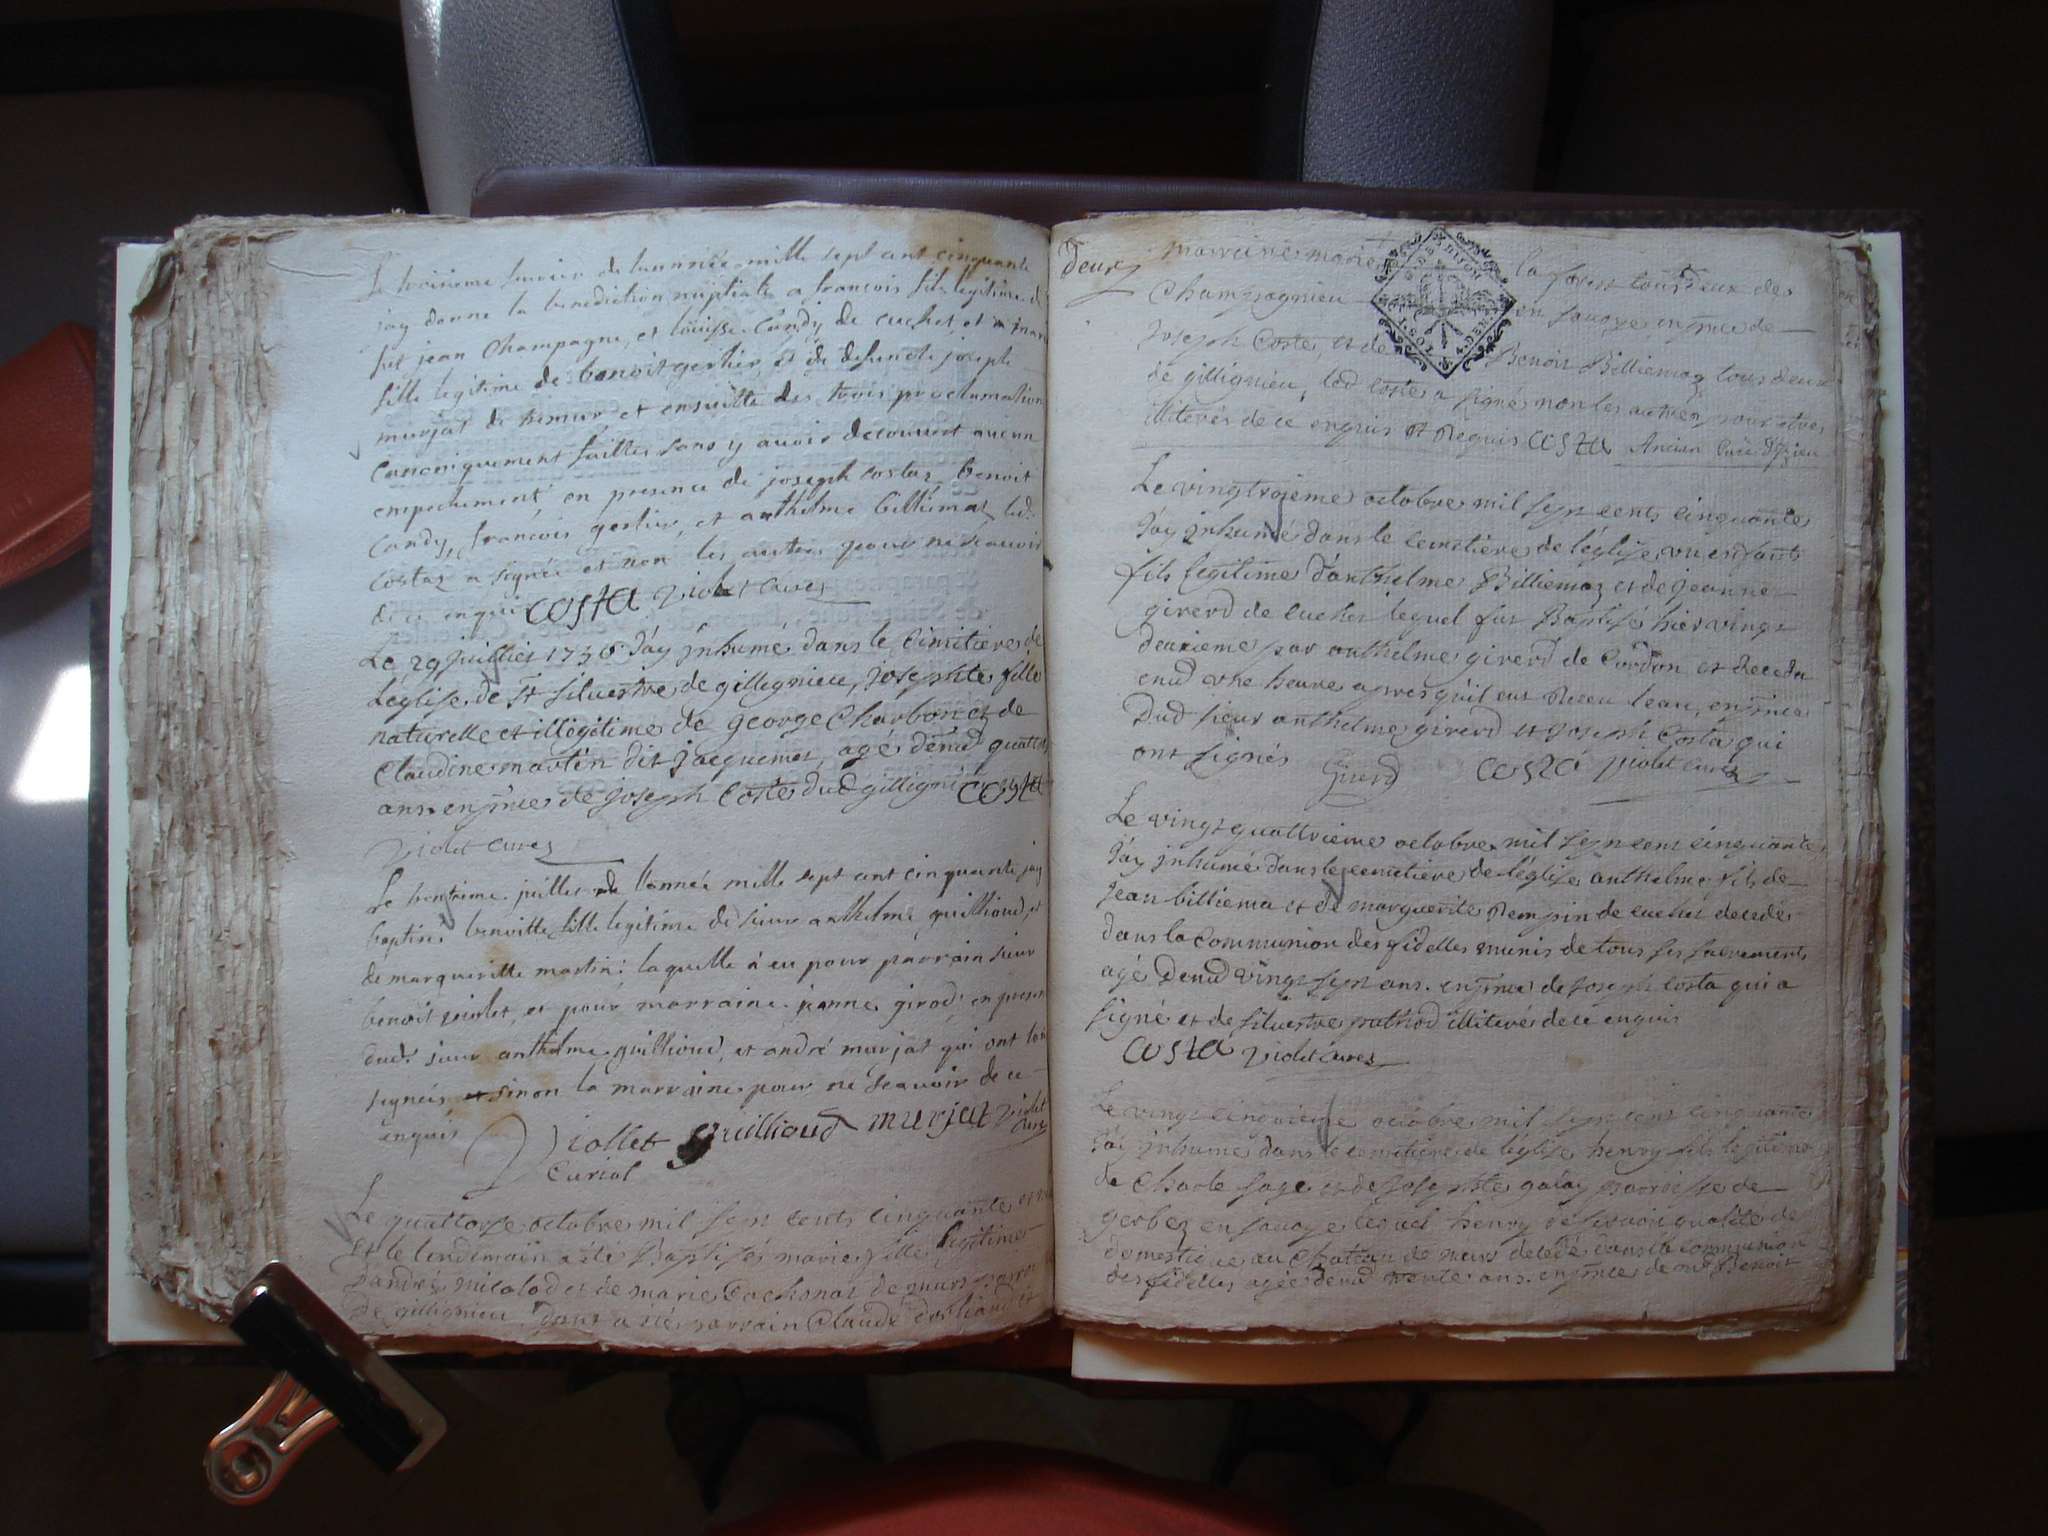 de l'année mille sept cent cinquante
jay donné la benediction nuptiale a françois fils legitime d
feu jean Champagne, et louise Candy de cuchet et a mar
fille legitime de benoit gerlier, et de defuncte joseph
murjat de et ensuitte des trois proclamation
canoniquement faittes sans y avoir decouvert aucun
empechement en presence de joseph costaz benoit
Candy, françois gerlier, et anthelme billiemaz led.
costaz a signé et non les autres pour ne scavoir
de ce enquis costa violet curez
Le 29 juillet 1750 j'ay jnhumé dans le cimitiere de
L'eglise de st silvestre de gillignieu, josephte fille
naturelle et illégitime de george Charbon et de
Claudine martin dit jacquemet, agé d'enud quattre
ans. en pnce de joseph Coste dud gillignieu costa
violet curez
Le trentieme juillet de l'année mille sept cent cinquante jay
baptisé benoitte fille legitime de sieur anthelme guillioud, et
de margueritte martin: laquelle à eu pour parrain sieur
benoit violet, et pour marraine jeanne girod, en presen
dud. sieur anthelme guillioud, et andré murjat qui ont tous
signéés sinon la marraine pour ne scavoir de ce
enquis Viollet guillioud murjat violet curez
Curial
Le quattorse octobre mil sept cents cinquante est née
et le lendemain a été Baptisés marie fille legitime
d'andré micolod et de marie de murs parroi
de gillignieu. dont a étés parrain Claude et
deux marraine marie la forest tous deux de
Champagnieu en savoye en pnce de
joseph Coste, et de Benoit Billiemaz tous deux
de gillignieu, led coste a signé non les autres pour etre
illiterés de ce enquis et Requis costa Ancien Curé d'Izieu
Le vingtroieme octobre mil sept cents cinquante
j'ay jnhumé dans le cemetiere de l'église, un enfant
fils legitime d'anthelme Billiemaz et de jeanne
girerd de cuchet lequel fut Baptisé hier vingt
deuxieme par anthelme girerd de Cordon et decedé
enud une heure apres qu'il eut Receu l'eau, en pnce
Dud sieur anthelme girerd et joseph Costa qui
ont signés Girerd costa violet curez
Le vingt quattrieme octobre mil sept cent cinquante
j'ay jnhumé dans le cemetiere de l'église anthelme fils de
jean billiema et de marguerite Rempin de cuchet decedé
dans la Communion des fidelles munis de tous ses sacrements
agé Denud vingt sept ans. en pnce de joseph Costa qui a
signé et de silvestre pathod illiteré de ce enquis
costa violet curez
Le vingt cinquieme octobre mil sept cent cinquante
j'ay jnhumé dans le cemetiere de l'église henry fils legitime
de Charle sage et de josephte parroisse de
gerbez en savoye lequel henry servoit qualité de
domestique au Chateau de murs decedé dans la communion
des fidelles agée denud trente ans. en pnce de mr Benoit